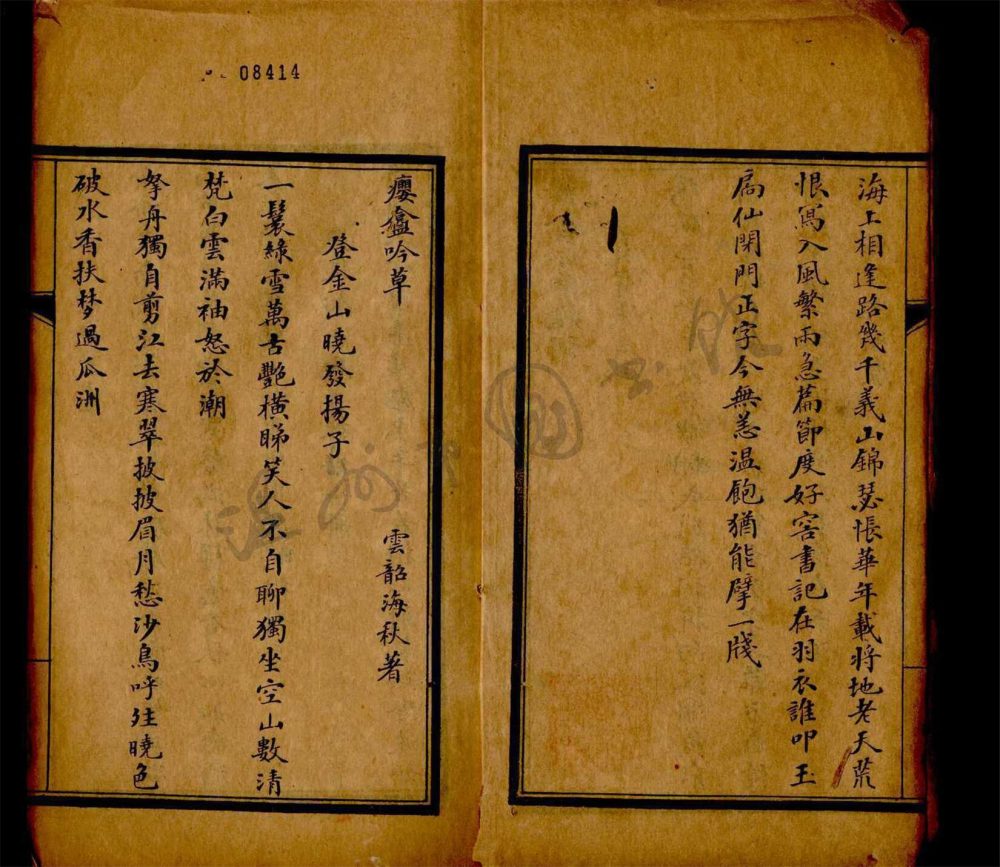 海上相逢路幾千義山錦瑟悵華年載將地老天荒
恨寫入風繁雨急篇節度好客書記在羽衣誰叩玉
扃仙閑門正字今無恙温飽猶能擘一牋
08414
癭盦吟草
雲韶海秋著
登金山曉發揚子
一鬟綠雪萬古艷橫睇笑人不自聊獨坐空山數清
梵白雲滿袖怒於潮
拏舟獨自剪江去寒翠披披眉月愁沙鳥呼
曉色
破水香扶梦過瓜洲